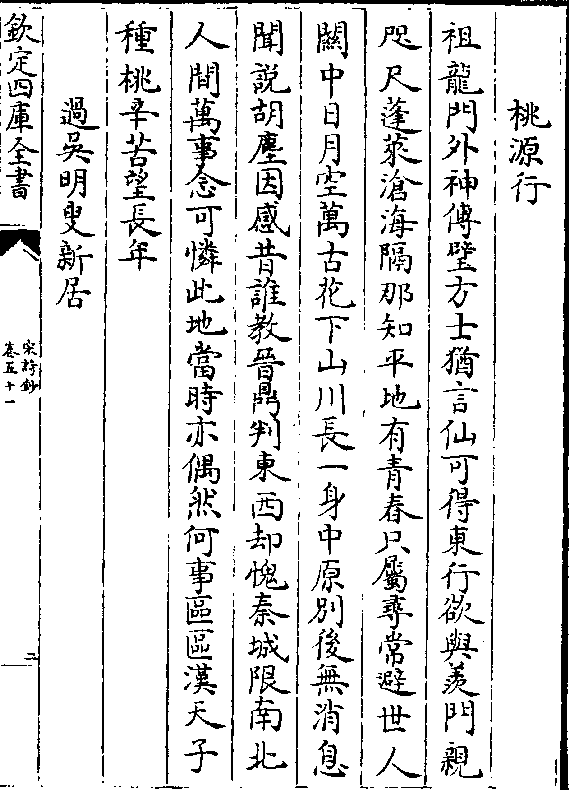 桃源行
祖龍門外神傳璧方士猶言仙可得東行欲與羨門親
咫尺蓬萊滄海隔那知平地有青春只屬尋常避世人
關中日月空萬古花下山川長一身中原別後無消息
聞說胡塵因感昔誰教晉鼎判東西却愧秦城限南北
人間萬事念可憐此地當時亦偶然何事區區漢天子
種桃辛苦望長年
過吳明叟新居
欽定四庫全書
宋詩鈔
卷五十一
二